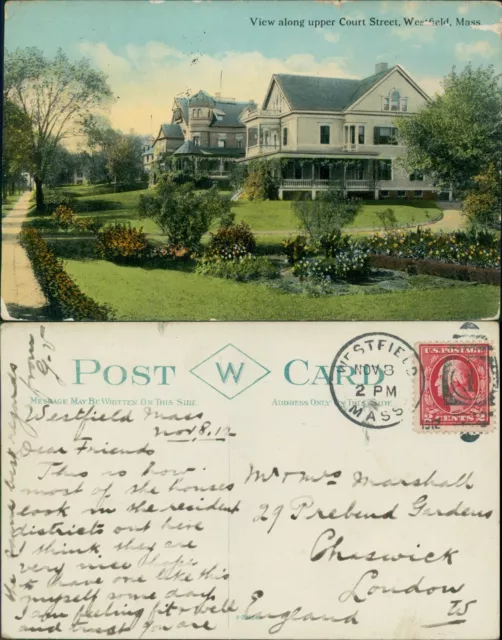 View along upper Court Street, Westfield, Mass.
POST W CARD
MESSAGE MAY BE WRITTEN ON THIS SIDE.
ADDRESS ONLY ON THIS SIDE.
WESTFIELD
NOV 8
2 PM
MASS.
1912
U.S. POSTAGE
2 CENTS 2
Westfield Mass
Nov, 8, 12
Dear Friends
This is how
most of the houses
look in the resident
districts out here
I think they are
very nice hope
to have one like this
myself some day
I am feeling fit & well
and trust you are
best regards
from
Mr & Mrs Marshall
29 Prebend Gardens
Chaswick
London
W
England